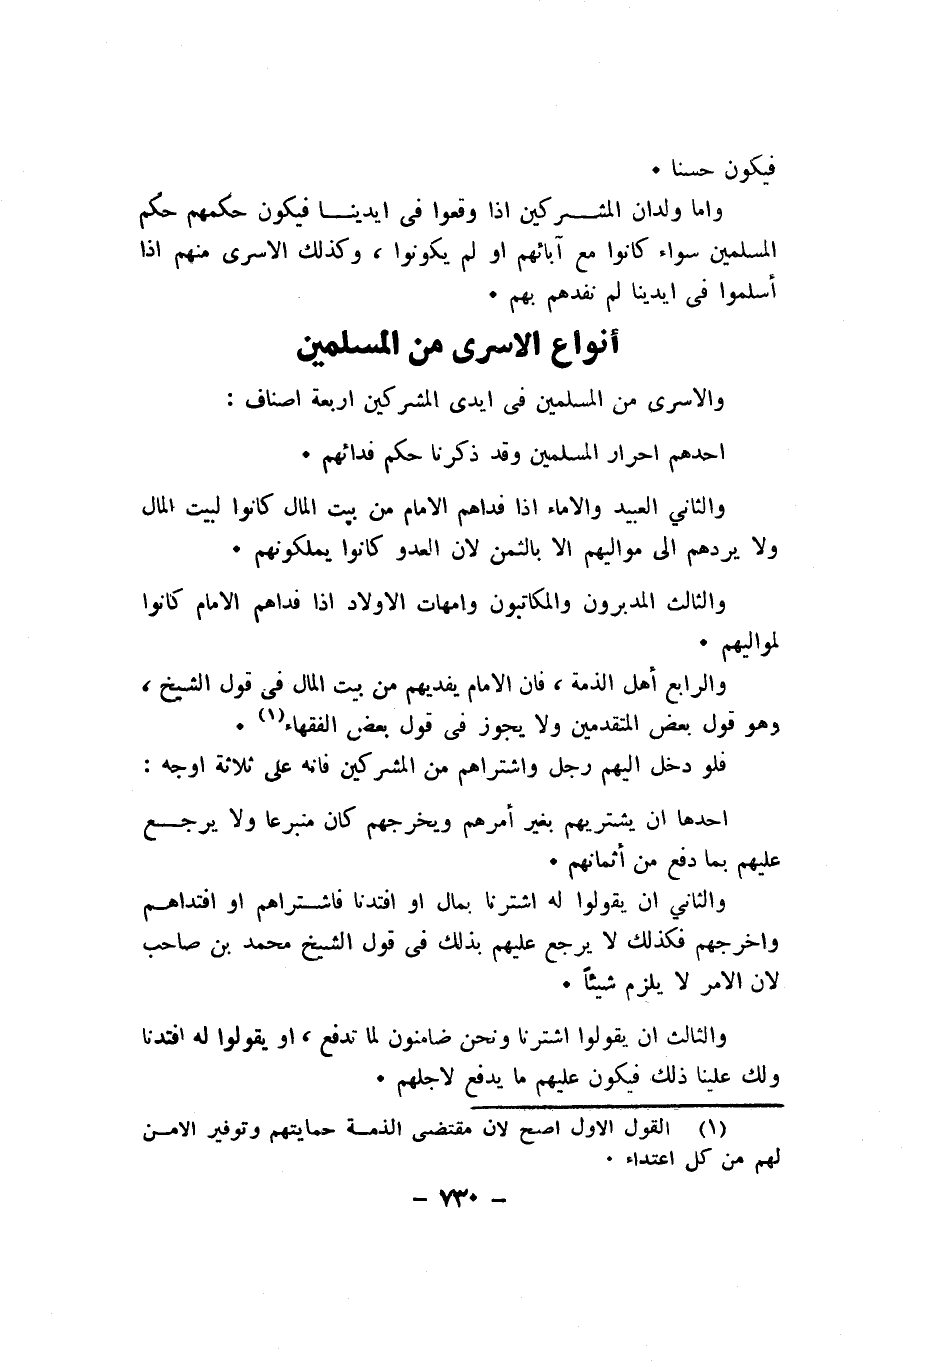 فيكون حسنا ٠
واما ولدان المشــركين اذا وقعوا فى ايدينــا فيكون حكمهم حكم
المسلمين سواء كانوا مع آبائهم او لم يكونوا ، وكذلك الاسرى منهم اذا
أسلموا فى ايدينا لم نفدهم بهم ٠
أنواع الاسرى من المسلمين
والاسرى من المسلمين فى ايدى المشركين اربعة اصناف :
احدهم احرار المسلمين وقد ذكرنا حكم فدائهم ٠
والثاني العبيد والاماء اذا فداهم الامام من بيت المال كانوا لبيت المال
ولا يردهم الى مواليهم الا بالثمن لان العدو كانوا يملكونهم ٠
والثالث المدبرون والمكاتبون وامهات الاولاد اذا فداهم الامام كانوا
لمواليهم ٠
والرابع أهل الذمة ، فان الامام يفديهم من بيت المال فى قول الشيخ ،
وهو قول بعض المتقدمين ولا يجوز فى قول بعض الفقهاء(١) ٠
فلو دخل اليهم رجل واشتراهم من المشركين فانه على ثلاثة اوجه :
احدها ان يشتريهم بغير أمرهم ويخرجهم كان متبرعا ولا يرجــع
عليهم بما دفع من أثمانهم ٠
والثاني ان يقولوا له اشترنا بمال او افتدنا فاشــتراهم او افتداهــم
واخرجهم فكذلك لا يرجع عليهم بذلك فى قول الشيخ محمد بن صاحب
لان الامر لا يلزم شيئاً ٠
والثالث ان يقولوا اشترنا ونحن ضامنون لما تدفع ، او يقولوا له افتدنا
ولك علينا ذلك فيكون عليهم ما يدفع لاجلهم ٠
(١) القول الاول اصح لان مقتضى الذمــة حمايتهم وتوفير الامــن
لهم من كل اعتداء ٠
– ٧٣٠ –